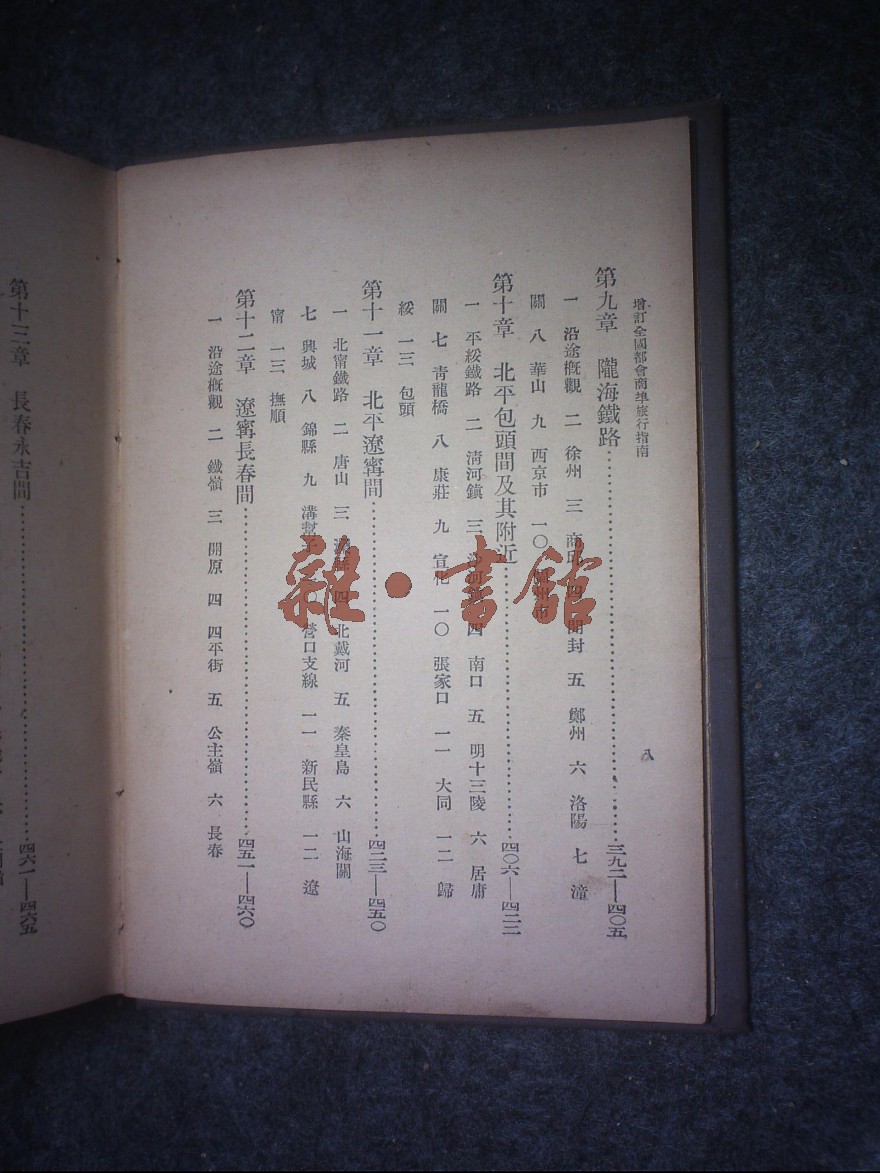 增訂全國都會商埠旅行指南
八
第九章 隴海鐵路 三九二—四〇五
一 沿途概觀 二 徐州 三 商邱 四 開封 五 鄭州 六 洛陽 七 潼
關 八 華山 九 西京市 一〇
第十章 北平包頭間及其附近 四〇六—四二二
一 平綏鐵路 二 清河鎮 三 沙河 四 南口 五 明十三陵 六 居庸
關 七 青龍橋 八 康莊 九 宣化 一〇 張家口 一一 大同 一二 歸
綏 一三 包頭
第十一章 北平遼寗間 四二三—四五〇
一 北甯鐵路 二 唐山 三 縣 四 北戴河 五 秦皇島 六 山海關
七 興城 八 錦縣 九 溝幫子 一〇 營口支線 一一 新民縣 一二 遼
甯 一三 撫順
第十二章 遼寗長春間 四五一—四六〇
一 沿途概觀 二 鐵嶺 三 開原 四 四平街 五 公主嶺 六 長春
第十三章 長春永吉間 四六一—四六五
雜·書館